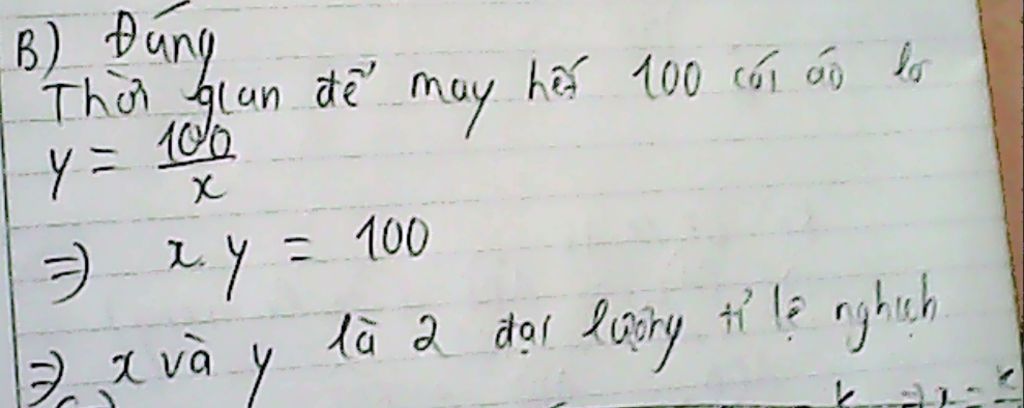 B) Đúng
Thời gian để may hết 100 cái áo là
y = 100/x
=> x.y = 100
=> x và y là 2 đại lượng tỉ lệ nghịch